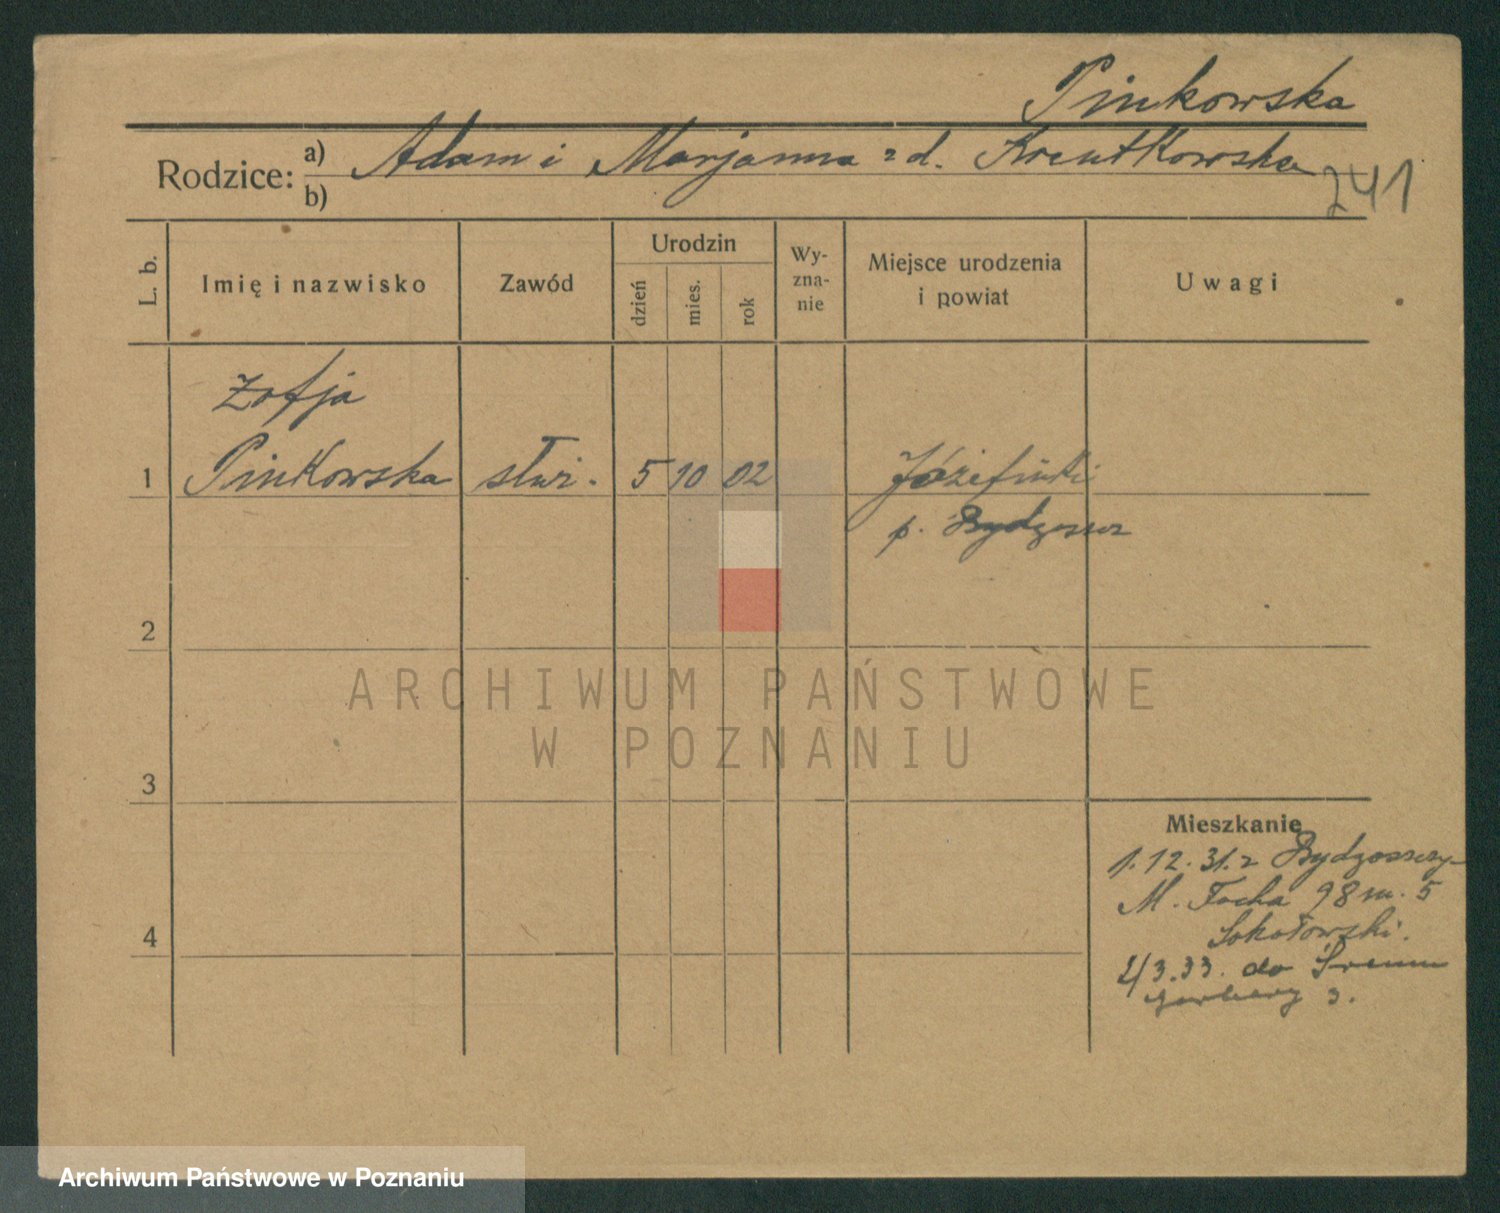 Pinkowska
Rodzice: a) Adam i Marjanna z d. Krentkowska
b)
241
L. b.
Imię i nazwisko
Zawód
Urodzin
dzień
mies.
rok
Wy-
zna-
nie
Miejsce urodzenia
i powiat
Uwagi
Zofja
1 Pinkowska służ. 5 10 02 Józefinki
p. Bydgoszcz
2
3
4
Mieszkanie
1.12.31. z Bydgoszczy
M. Focha 98 m. 5
Sokołowski.
2/3.33. do Śremu
Garbary 3.
ARCHIWUM PAŃSTWOWE
W POZNANIU
Archiwum Państwowe w Poznaniu